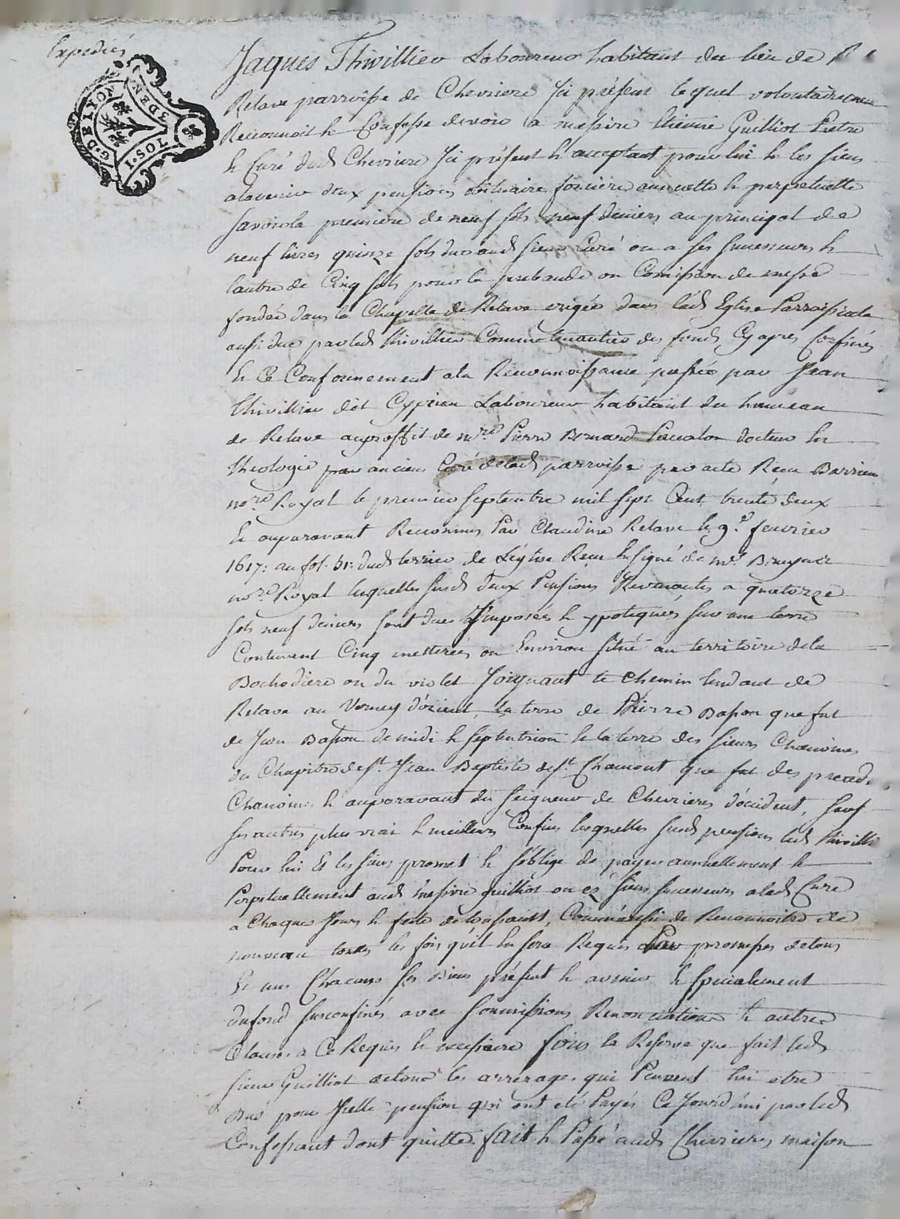 Expediés
G. D. E LYON
TOS. 1. 3 DEN
Jaques Thivillier Laboureur habitant du lieu de
Relave parroisse de Chevriere Icy présent lequel volontairement
Reconnoit & Confesse devoir a messire Etienne Guilliot Pretre
& Curé dud Chevriere Icy présent & acceptant pour lui & les siens
alavenir deux pensions obituaire fonciere annuelle & perpetuelle
savoir la premiere de neuf sols neuf deniers au principal de
neuf livres quinze sols due aud sieur Curé ou a ses successeurs &
lautre de Cinq sols pour la prebande ou Comission de messe
fondée dans la Chapelle de Relave erigée dans lad Eglise Parroissiale
aussi due par led Thivillier Comme tenantier des fonds Cy apres Confinés
& Ce Conformement ala Reconnoissance passée par Jean
Thivillier dit Cyprien Laboureur habitant du hameau
de Relave au proffit de mre Pierre Bernard docteur en
theologie ancien Curé delad parroisse par acte Recu Barrieu
nore Royal le premier septembre mil sept Cent trente deux
& auparavant Reconnus Par Claudine Relave le 9e fevrier
1617: au fol. 51: dud terrier de Leglise Recu & signé de me
nore Royal lesquelles susd deux Pensions Revenantes a quatorze
sols neuf deniers sont dues Imposées & ypotequés sur une terre
Contenant Cinq metterées ou Environ situé au territoire dela
Bochodiere ou du violet Joignant le Chemin tendant de
Relave au Verney d'orient, la terre de Pierre Basson que fut
de Jean Basson de midi & septentrion & la terre des sieurs Chanoines
du Chapitre de st Jean Baptiste de st Chamont que fut des preced.
Chanoines & auparavant du seigneur de Chevrieres d'occident, sauf
ses autres plus vrai & meilleurs Confins lesquelles susd pensions led Thivilli
Pour lui Et les siens promet & s'oblige de payer annuellement &
Perpetuellement aud messire guilliot ou es siens successeurs alad Cure
a Chaque Jour & feste de toussaint, Comme aussi de Reconnoitre de
nouveau toutes les fois qu'il En sera Requis Par promesses de tous
Et uns Chacuns ses Biens présent & avenir & specialement
du fond susconfiné, avec soumissions Renonciations & autres
Clauses a Ce Requis & necessaire sous la Reserve que fait led
sieur Guilliot de tous les arrerages qui Peuvent lui etre
Dus pour Icelle pension qui ont eté Payés Ce Jourd'hui par led
Confessant dont quitte, fait & Passé aud Chevrieres maison